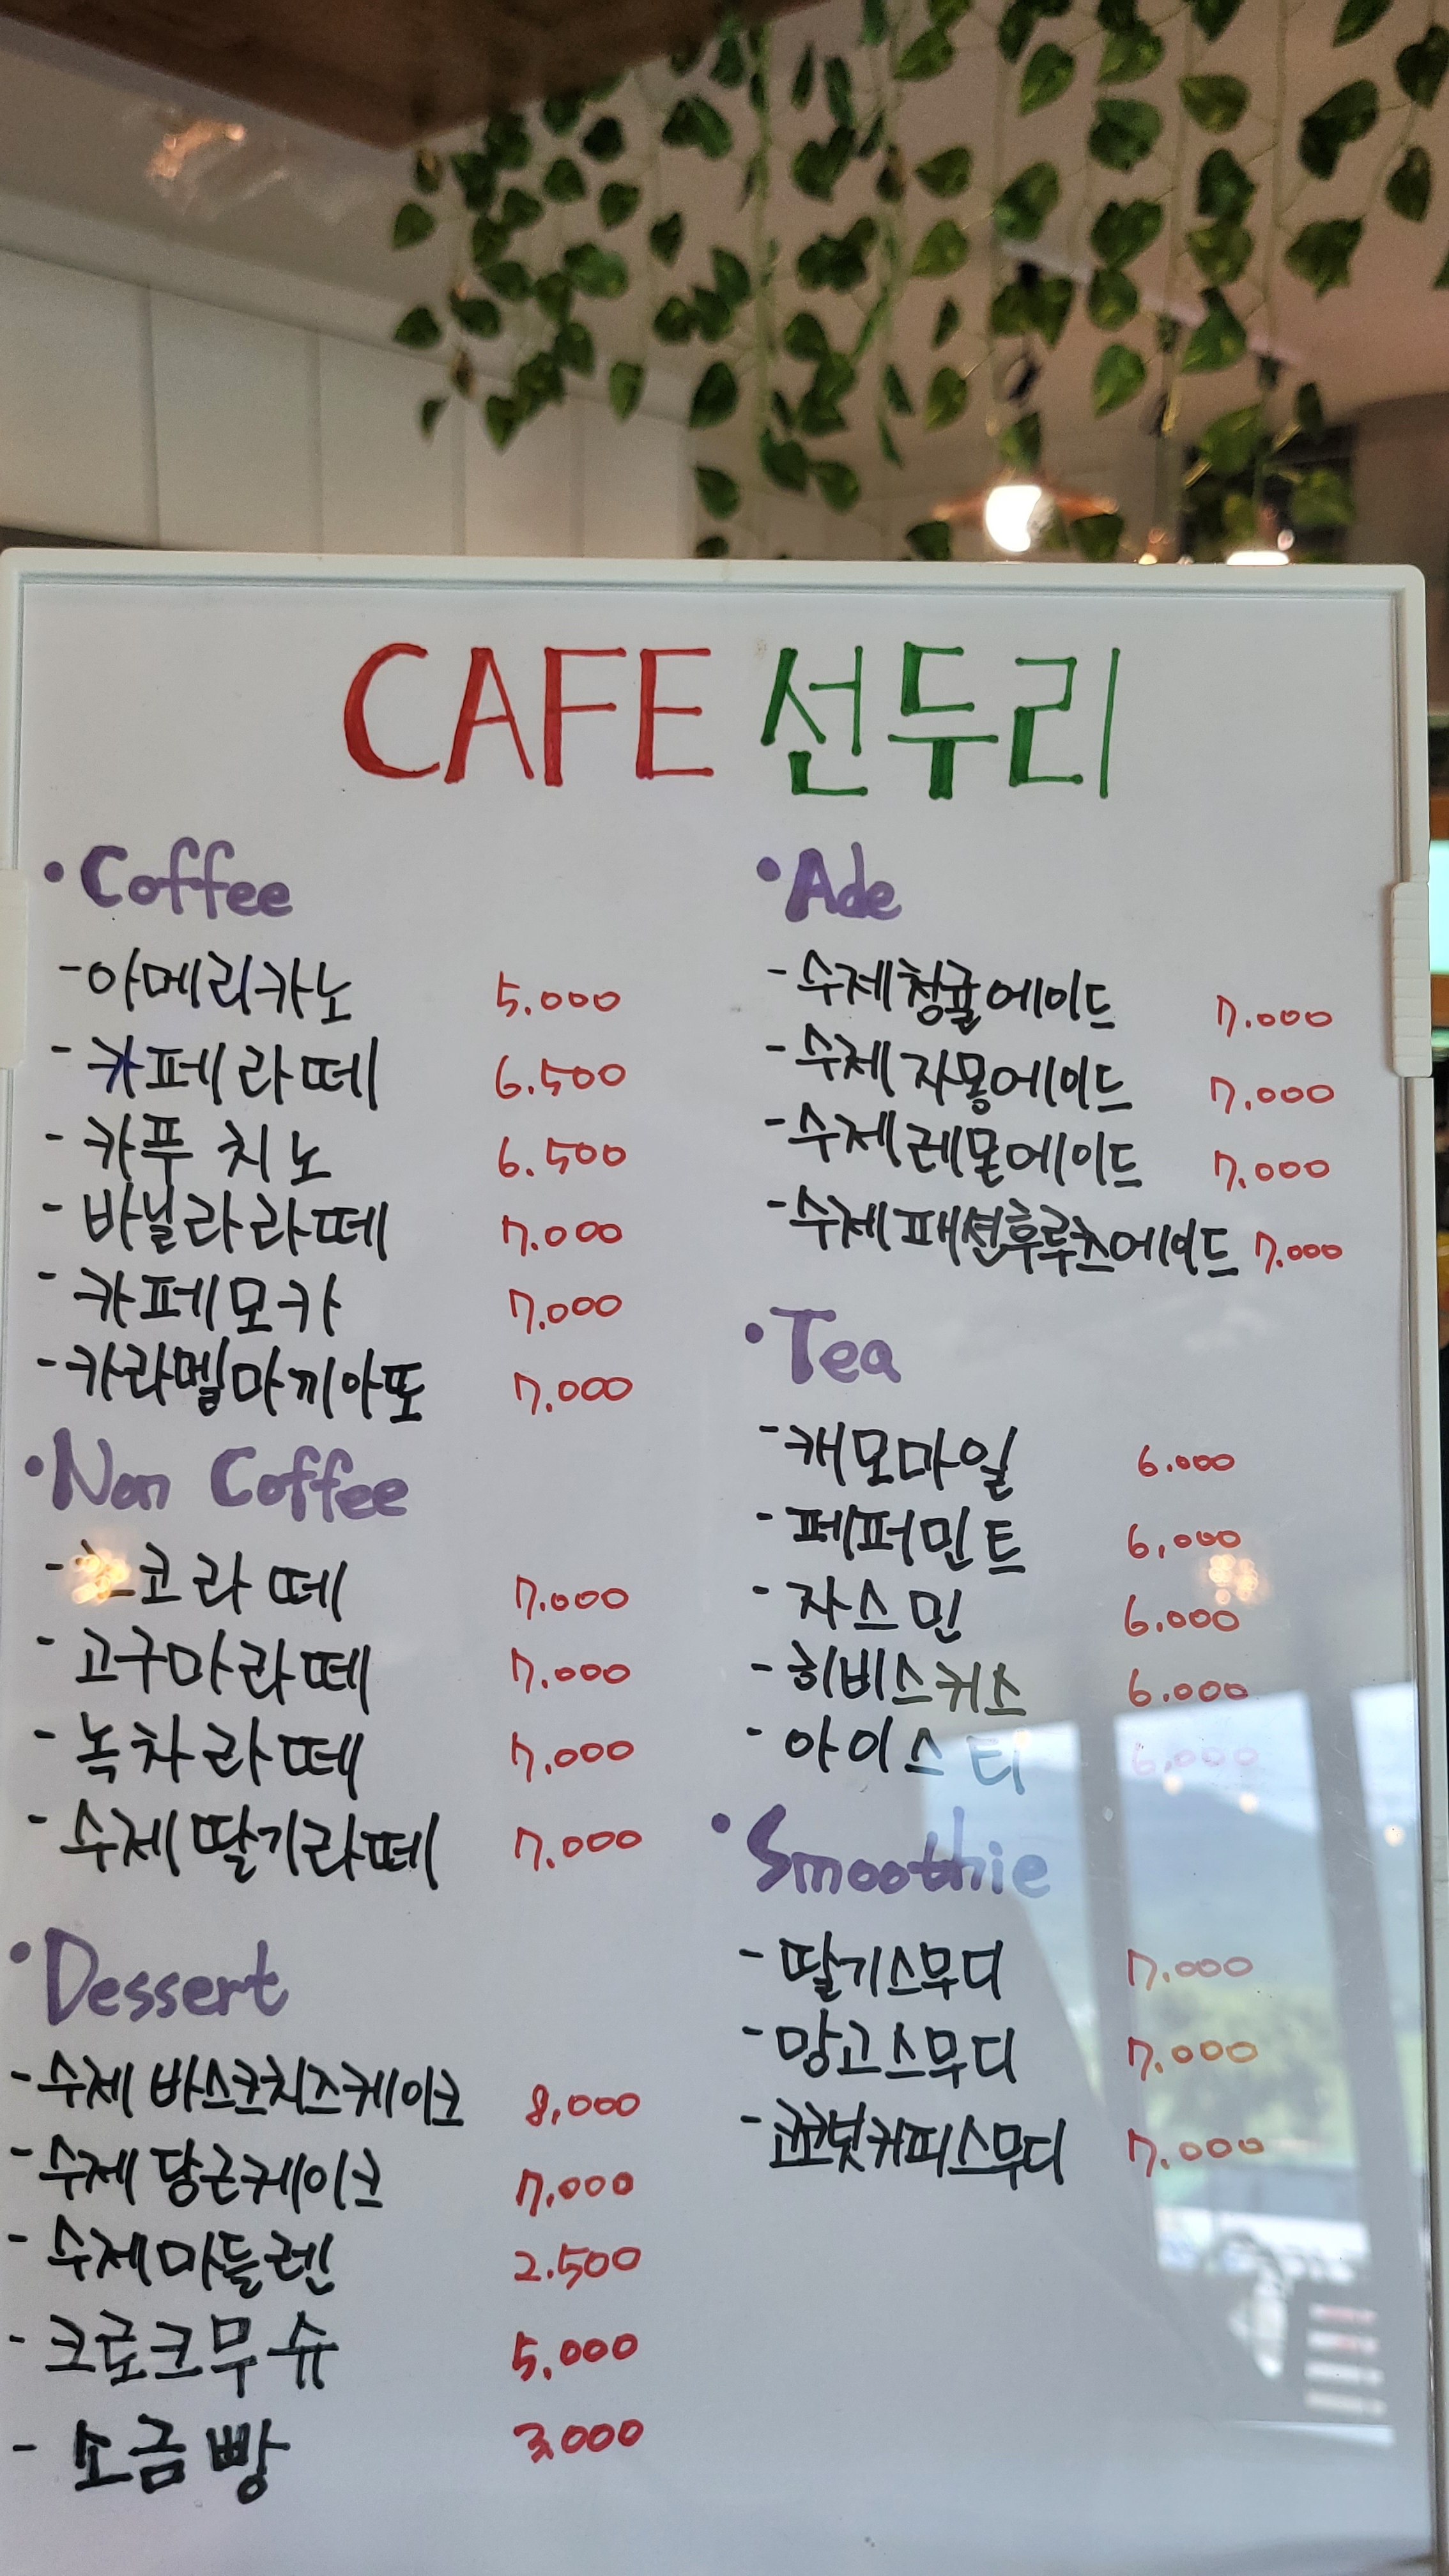 CAFE 선두리
• Coffee
- 아메리카노 5.000
- 카페라떼 6.500
- 카푸치노 6.500
- 바닐라라떼 7.000
- 카페모카 7.000
- 카라멜마끼아또 7.000
• Non Coffee
- 코라떼 7.000
- 고구마라떼 7.000
- 녹차라떼 7.000
- 수제딸기라떼 7.000
• Dessert
- 수제 바스크치즈케이크 8,000
- 수제 당근케이크 7,000
- 수제마들렌 2.500
- 크로크무슈 5,000
- 소금빵 3,000
• Ade
- 수제청귤에이드 7.000
- 수제자몽에이드 7.000
- 수제레몬에이드 7.000
- 수제패션후루츠에이드 7.000
• Tea
- 캐모마일 6.000
- 페퍼민트 6,000
- 자스민 6.000
- 히비스커스 6.000
- 아이스티 6,000
• Smoothie
- 딸기스무디 7.000
- 망고스무디 7.000
- 코코넛커피스무디 7.000